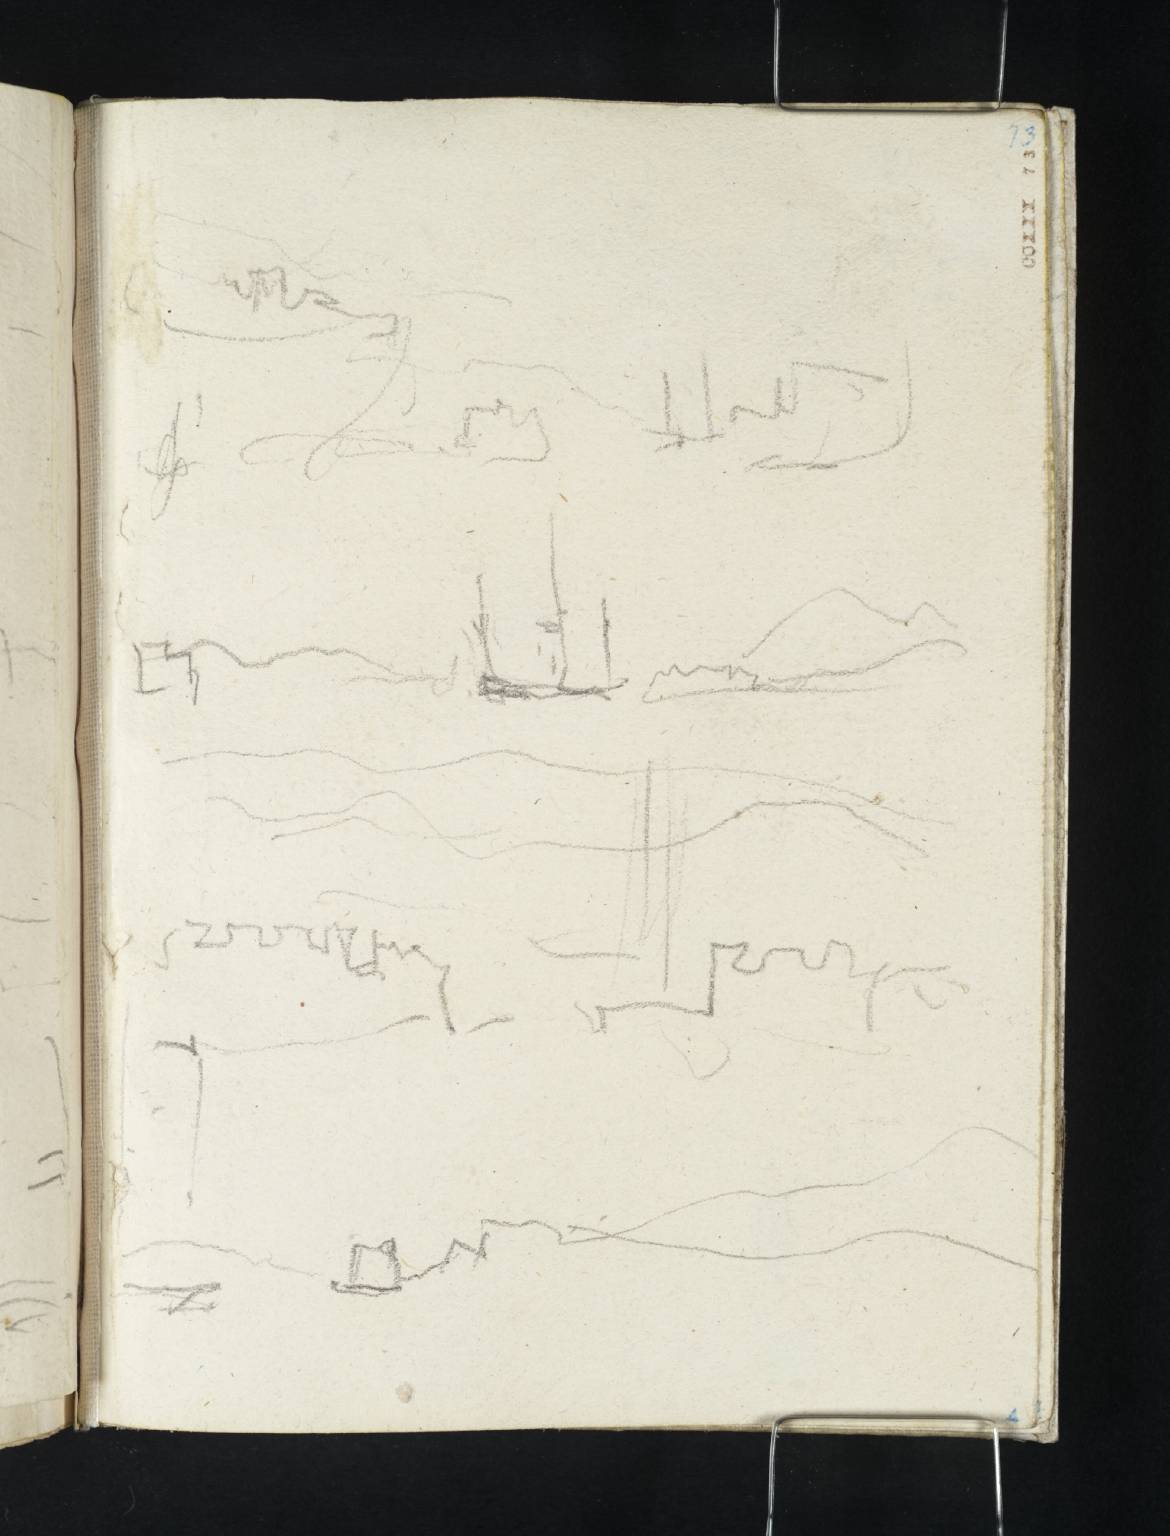 73
CCXXX 73